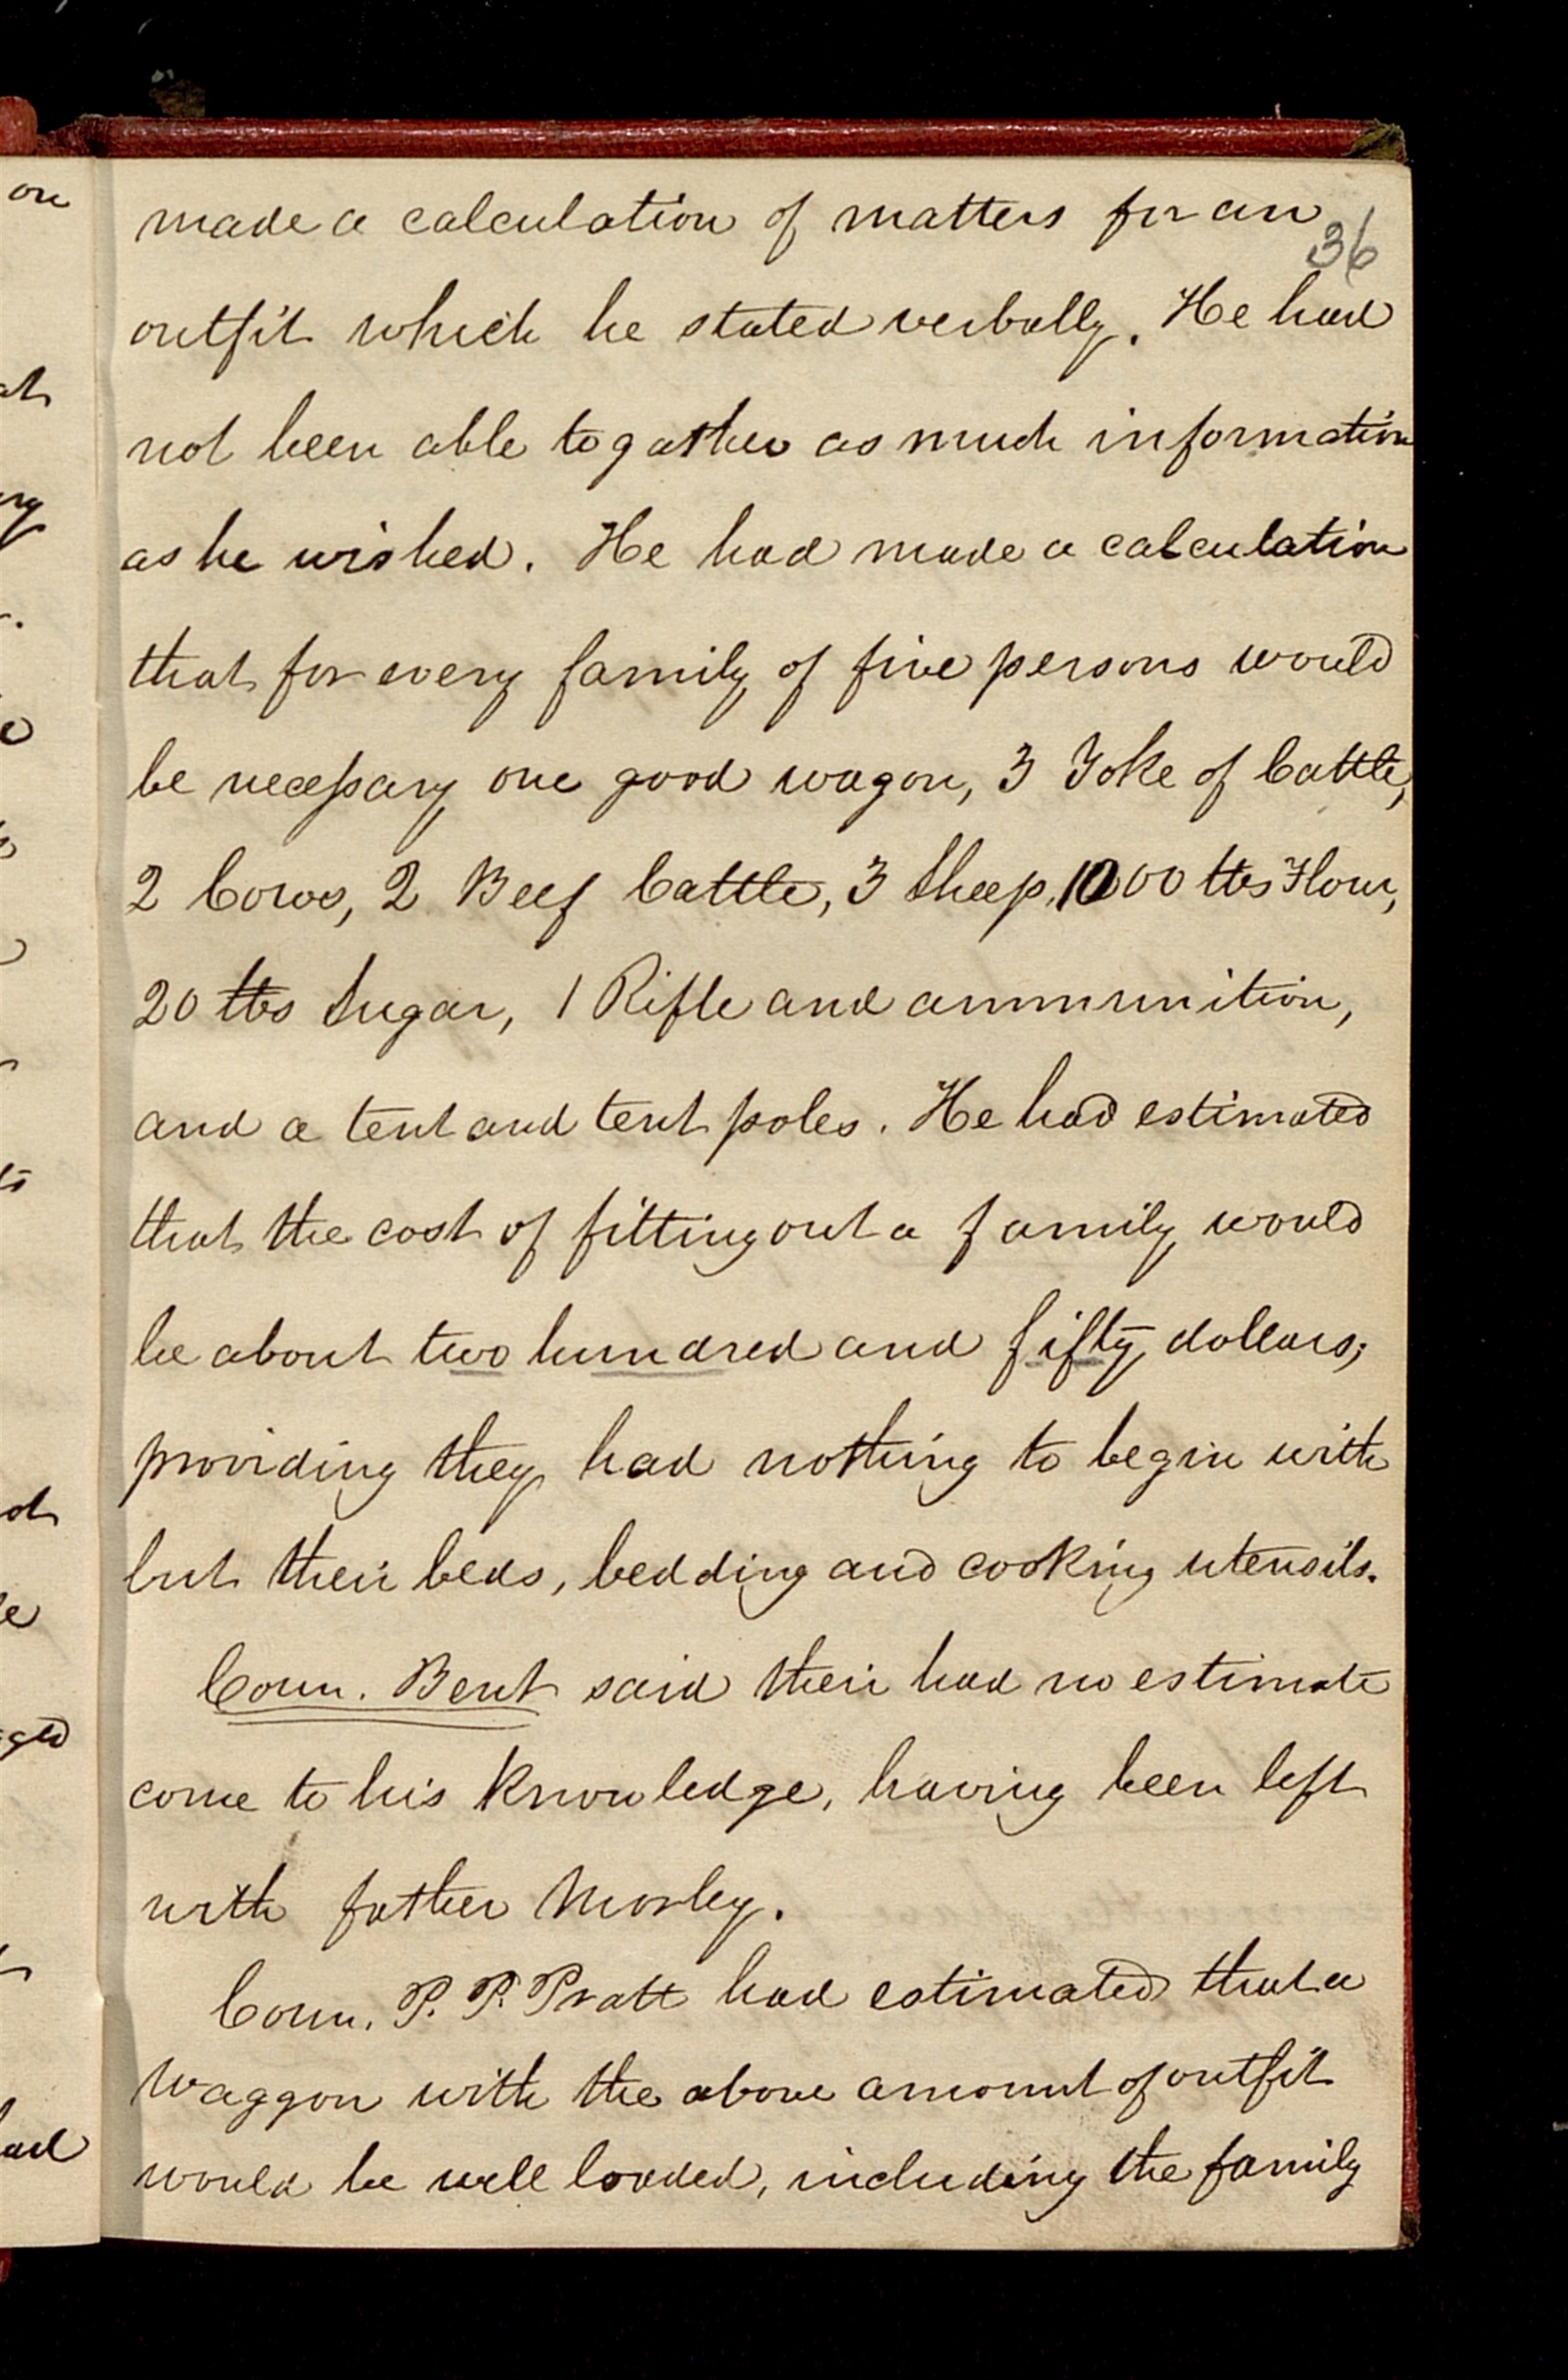 made a calculation of matters for an
36
outfit which he stated verbally. He had
not been able to gather as much information
as he wished. He had made a calculation
that for every family of five persons would
be necessary one good wagon, 3 Yoke of Cattle,
2 Cows, 2 Beef Cattle, 3 Sheep, 1000 lbs Flour,
20 lbs Sugar, 1 Rifle and ammunition,
and a tent and tent poles. He had estimated
that the cost of fitting out a family would
be about two hundred and fifty dollars,
providing they had nothing to begin with
but their beds, bedding and cooking utensils.
Coun. Bent said their had no estimate
come to his knowledge, having been left
with father Morley.
Coun. P. P. Pratt had estimated that a
Waggon with the above amount of outfit
would be well loaded, including the family